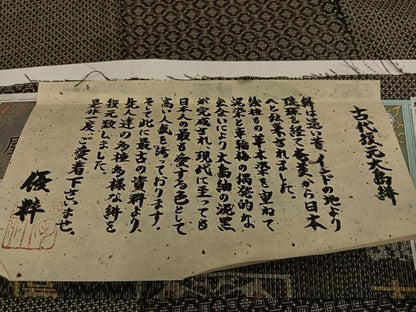 古代復元大島絣
絣は遠い昔、インドの地より
琉球を経て奄美から日本
へと伝承されました。
幾種もの草木染を重ねて
泥染と車輪梅の偶発的な
出会いにより大島紬の泥黒
が完成され、現代に至っても
日本人の最も愛する色として
高い人気を誇っております。
そして此に最古の資料より
先人達の多種多様な絣を
復元致しました。
是非一度ご愛着下さいませ。